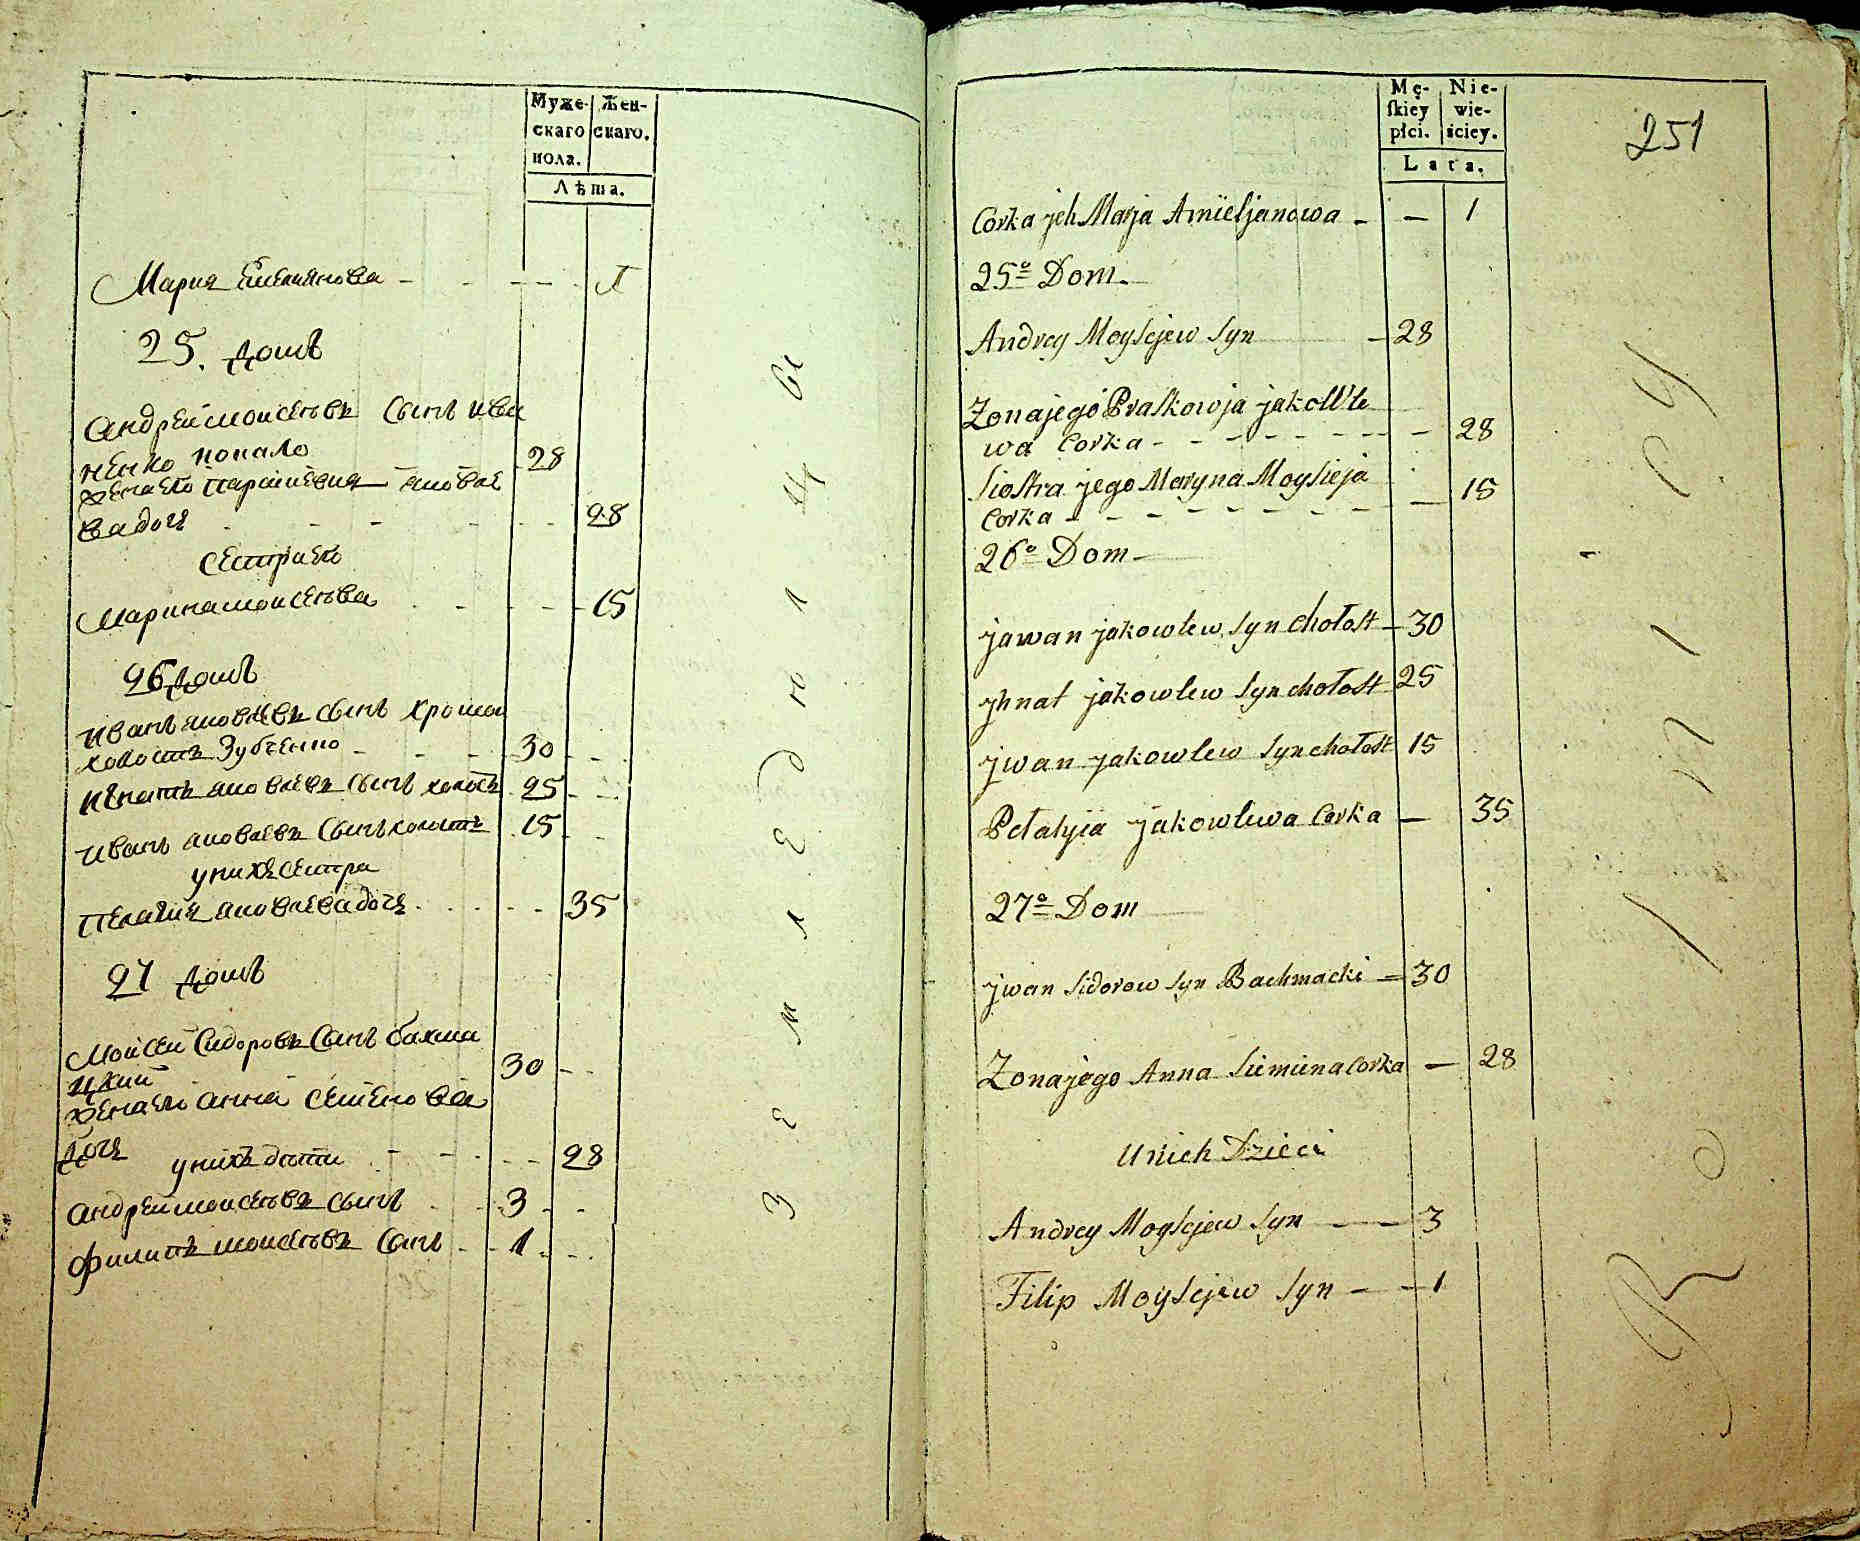 Муже-
скаго
пола.
Жен-
скаго.
Лѣта.
Мария Емелиянова - - - - - 1
25. Домъ
Андреи моисѣевъ сынъ ива
ненко попало 28
жена его Парасꙗевия яковле
ва дочь - - - - 28
сестра его
Марина моисѣева - - - 15
26 Домъ
Иванъ яковлевъ сынъ хромои
холостъ Зубченко - - - 30 - -
Игнатъ яковлевъ сынъ холостъ 25 - -
Иванъ яковлевъ сынъ холостъ 15 - -
у них сестра
Пелагия яковлева дочь - - - - 35
27 Домъ
Моисеи Сидоровъ сынъ бахма
цкий 30 - -
жена его анна семенова
Дочь - - - - 28
у нихъ дѣти
андреи моисѣевъ сынъ - - 3 - -
филипъ моисѣевъ сынъ - - 1 - -
Земледѣлцы
Mę-
skiey
płci.
Nie-
wie-
ściey.
Lata.
251
Corka jch Marja Amieljanowa - - 1
25º Dom.
Andrey Moysejew Syn - 28
Zona jego Praskowja jakowle
wa Corka - - - - - - - 28
Siostra jego Maryna Moysieja
Corka - - - - - - - - 15
26º Dom
jawan jakowlew Syn chołost - 30
jhnat jakowlew Syn chołost 25
jwan jakowlew Syn chołost 15
Pełahjia jakowlewa Corka - 35
27º Dom
jwan Sidorow Syn Bachmacki - 30
Zona jego Anna Siemiena Corka - 28
U nich Dzieci
Andrey Moysejew Syn - 3
Filip Moysejew Syn - - 1
Rolnicy